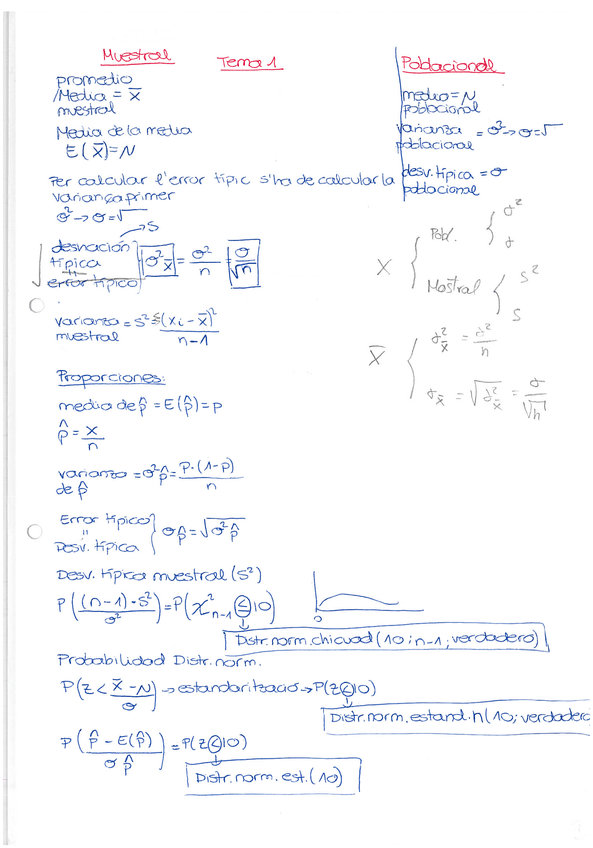 Muestral
Tema 1
Poblacional
promedio
/Media = x̄
muestral
Media de la media
E(x̄)=N
media = N
poblacional
varianza = σ²→σ=√
poblacional
desv. típica = σ
poblacional
Per calcular l'error típic s'ha de calcular la
variança primer
σ²→σ=√
→S
desviación
típica
"
error típico
σ²x̄ = σ²/n = σ/√n
varianza = S² = Σ(xi - x̄)²/n-1
muestral
X { Pobl. { σ²
σ
Mostral { S²
S
X̄ { σ²x̄ = σ²/n
σx̄ = √σ²x̄ = σ/√n
Proporciones:
media de p̂ = E(p̂)=p
p̂ = x/n
varianza = σ²p̂ = P·(1-p)/n
de p̂
Error típico
"
Desv. típica
} σp̂ = √σ²p̂
Desv. típica muestral (S²)
P((n-1)·S²/σ²) = P(χ²n-1 ≤ 10)
0
Distr.norm.chicuad(10;n-1;verdadero)
Probabilidad Distr.norm.
P(Z < x̄-N/σ) → estandarització → P(Z≤10)
Distr.norm.estand.n(10;verdadero
P(p̂ - E(p̂)/σp̂) = P(Z≤10)
Distr.norm.est.(10)